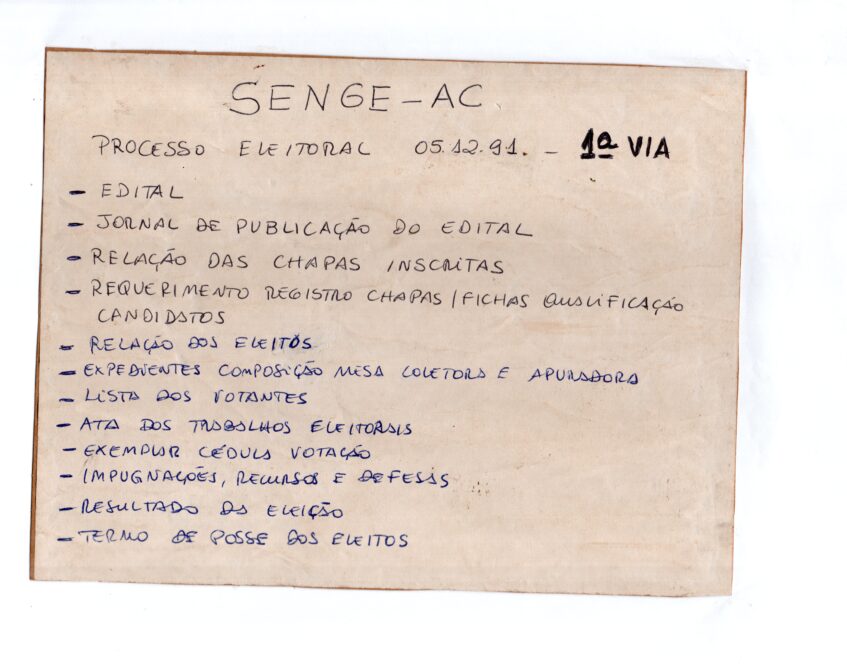 SENGE - AC
PROCESSO ELEITORAL 05.12.91. - 1ª VIA
- EDITAL
- JORNAL DE PUBLICAÇÃO DO EDITAL
- RELAÇÃO DAS CHAPAS INSCRITAS
- REQUERIMENTO REGISTRO CHAPAS / FICHAS QUALIFICAÇÃO
CANDIDATOS
- RELAÇÃO DOS ELEITOS
- EXPEDIENTES COMPOSIÇÃO MESA COLETORA E APURADORA
- LISTA DOS VOTANTES
- ATA DOS TRABALHOS ELEITORAIS
- EXEMPLAR CÉDULA VOTAÇÃO
- IMPUGNAÇÕES, RECURSOS E DEFESAS
- RESULTADO DA ELEIÇÃO
- TERMO DE POSSE DOS ELEITOS